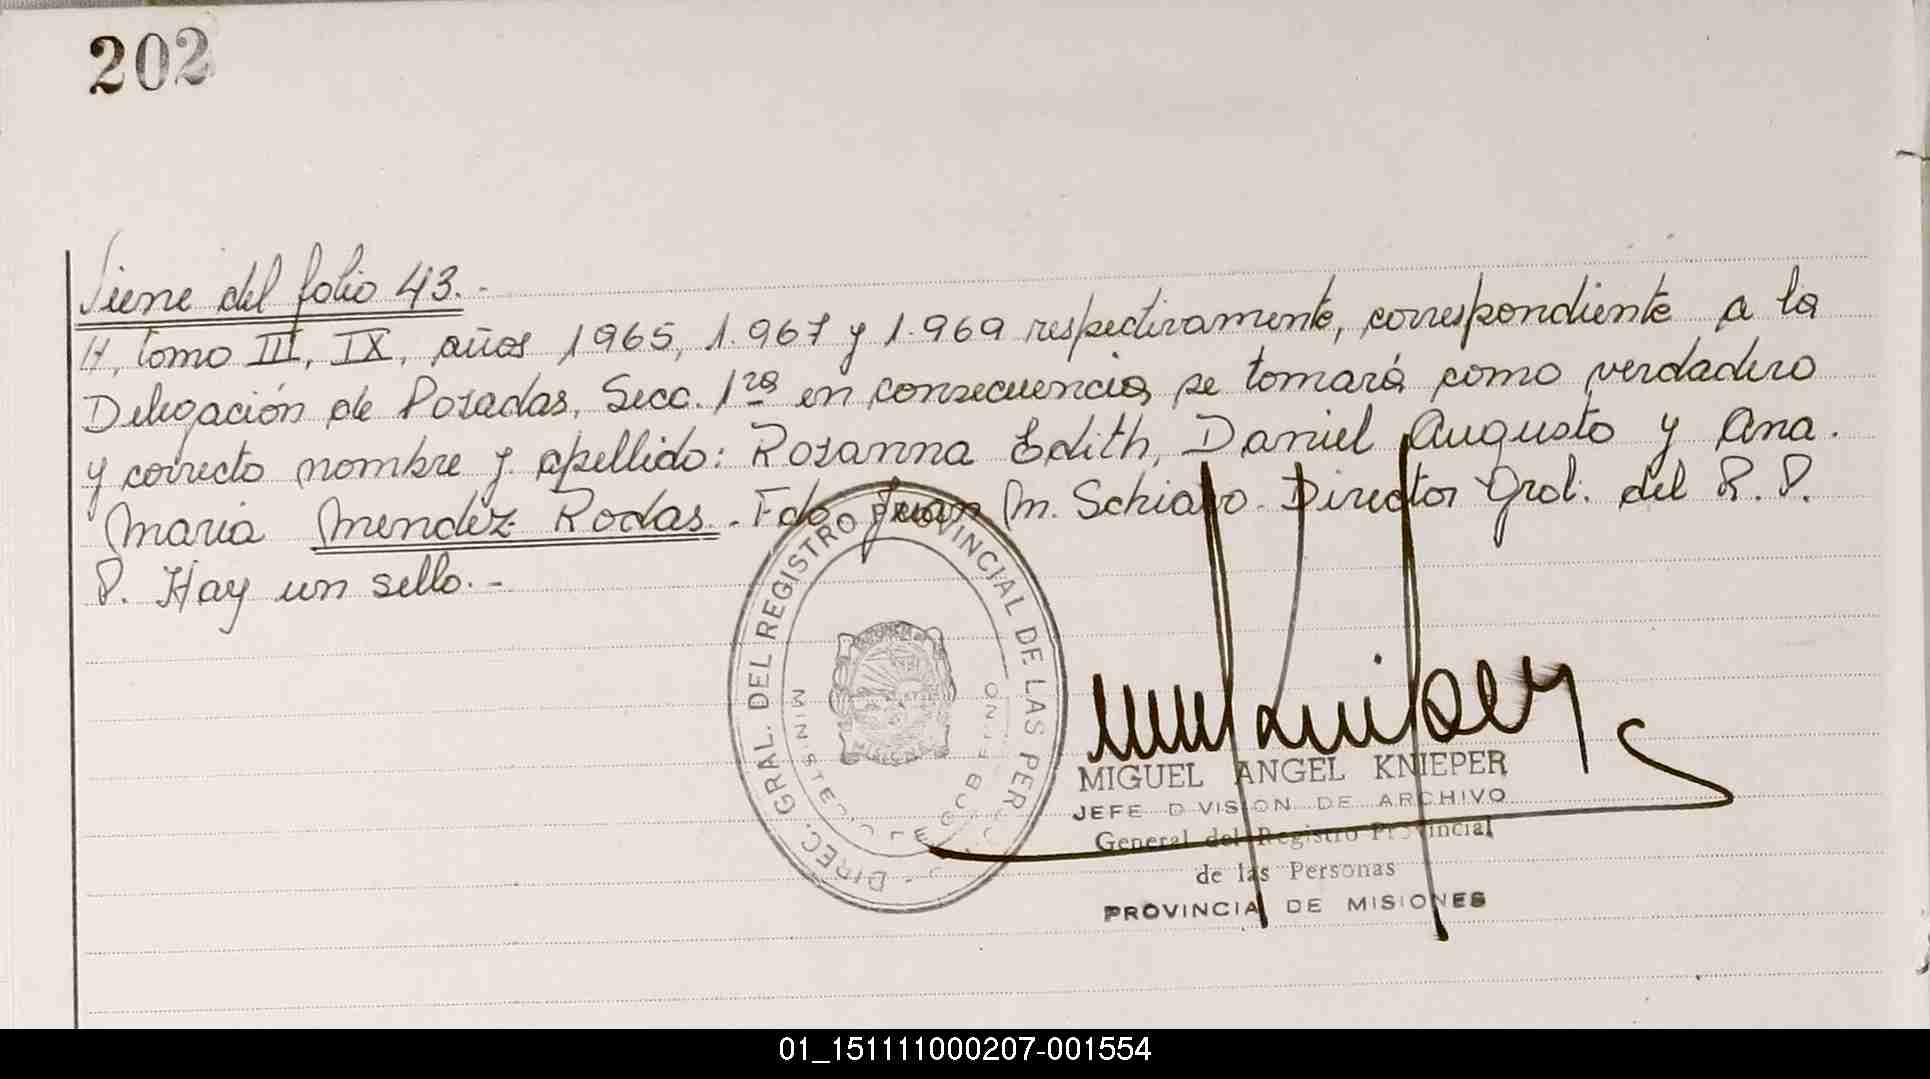 202
Viene del folio 43.-
H, tomo III, IX, años 1965, 1.967 y 1.969 respectivamente, correspondiente a la
Delegación de Posadas, Secc. 1ra en consecuencia, se tomará como verdadero
y correcto nombre y apellido: Rosanna Edith, Daniel Augusto y Ana.
Maria Mendez Rodas. Fdo Juan M. Schiavo. Director Gral. del R. P.
P. Hay un sello.-
DIREC. GRAL. DEL REGISTRO PROVINCIAL DE LAS PER
MISIONES
MIGUEL ANGEL KNIEPER
JEFE DIVISION DE ARCHIVO
General del Registro Provincial
de las Personas
PROVINCIA DE MISIONES
01_151111000207-001554